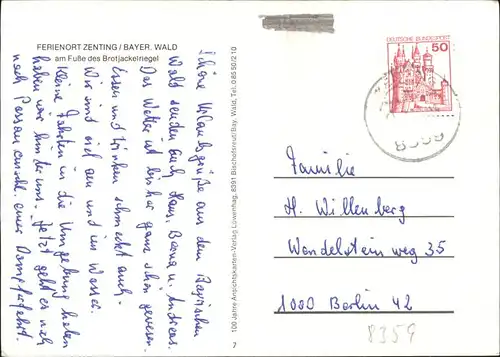 FERIENORT ZENTING / BAYER. WALD
am Fuße des Brotjackelriegel
Schöne Urlaubsgrüße aus dem Bayrischen
Wald senden euch Klaus, u. Andreas.
Das Wetter ist bisher ganz schön gewesen.
Essen und Trinken schmeckt auch.
Wir sind viel am und im Wasser.
Kleine Fahrten in die Umgebung haben
haben wir hinter uns. Jetzt geht es nach
nach Passau anschl. einer Dampferfahrt.
100 Jahre Ansichtskarten-Verlag Löwenhag, 8391 Bischofsreut/Bay. Wald, Tel. 08550/210
7
DEUTSCHE BUNDESPOST
50
8359
Familie
H. Willenberg
Wendelsteinweg 35
1000 Berlin 42
8359